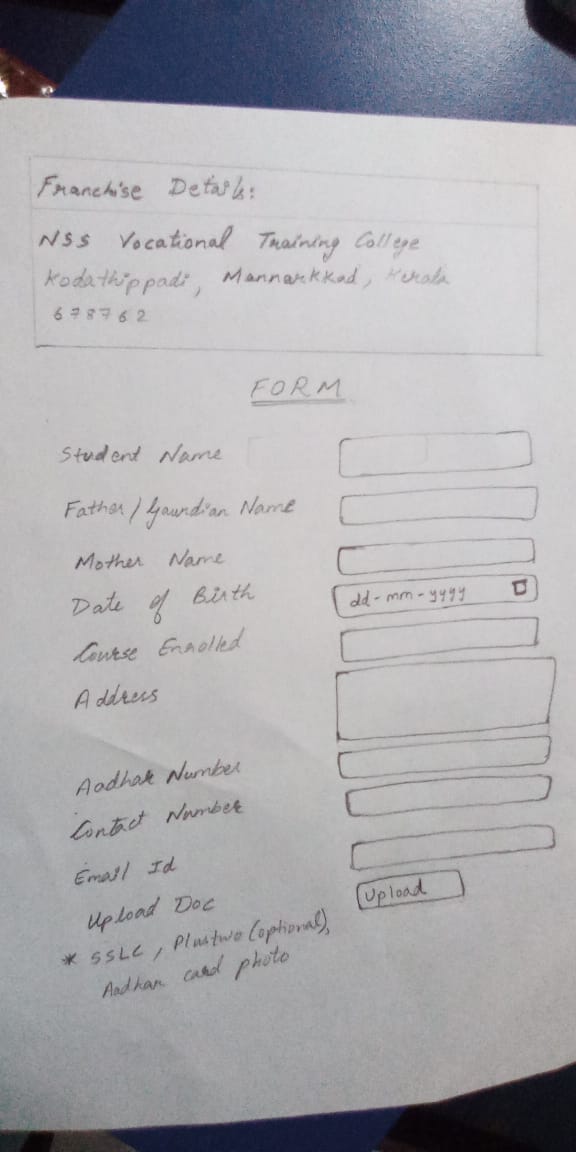 Franchise Details:
NSS Vocational Training College
Kodathippadi, Mannarkkad, Kerala
678762
FORM
Student Name
Father/Gaurdian Name
Mother Name
Date of Birth dd-mm-yyyy
Course Enrolled
Address
Aadhar Number
Contact Number
Email Id
Upload Doc Upload
* SSLC, Plustwo (optional),
Aadhar card photo